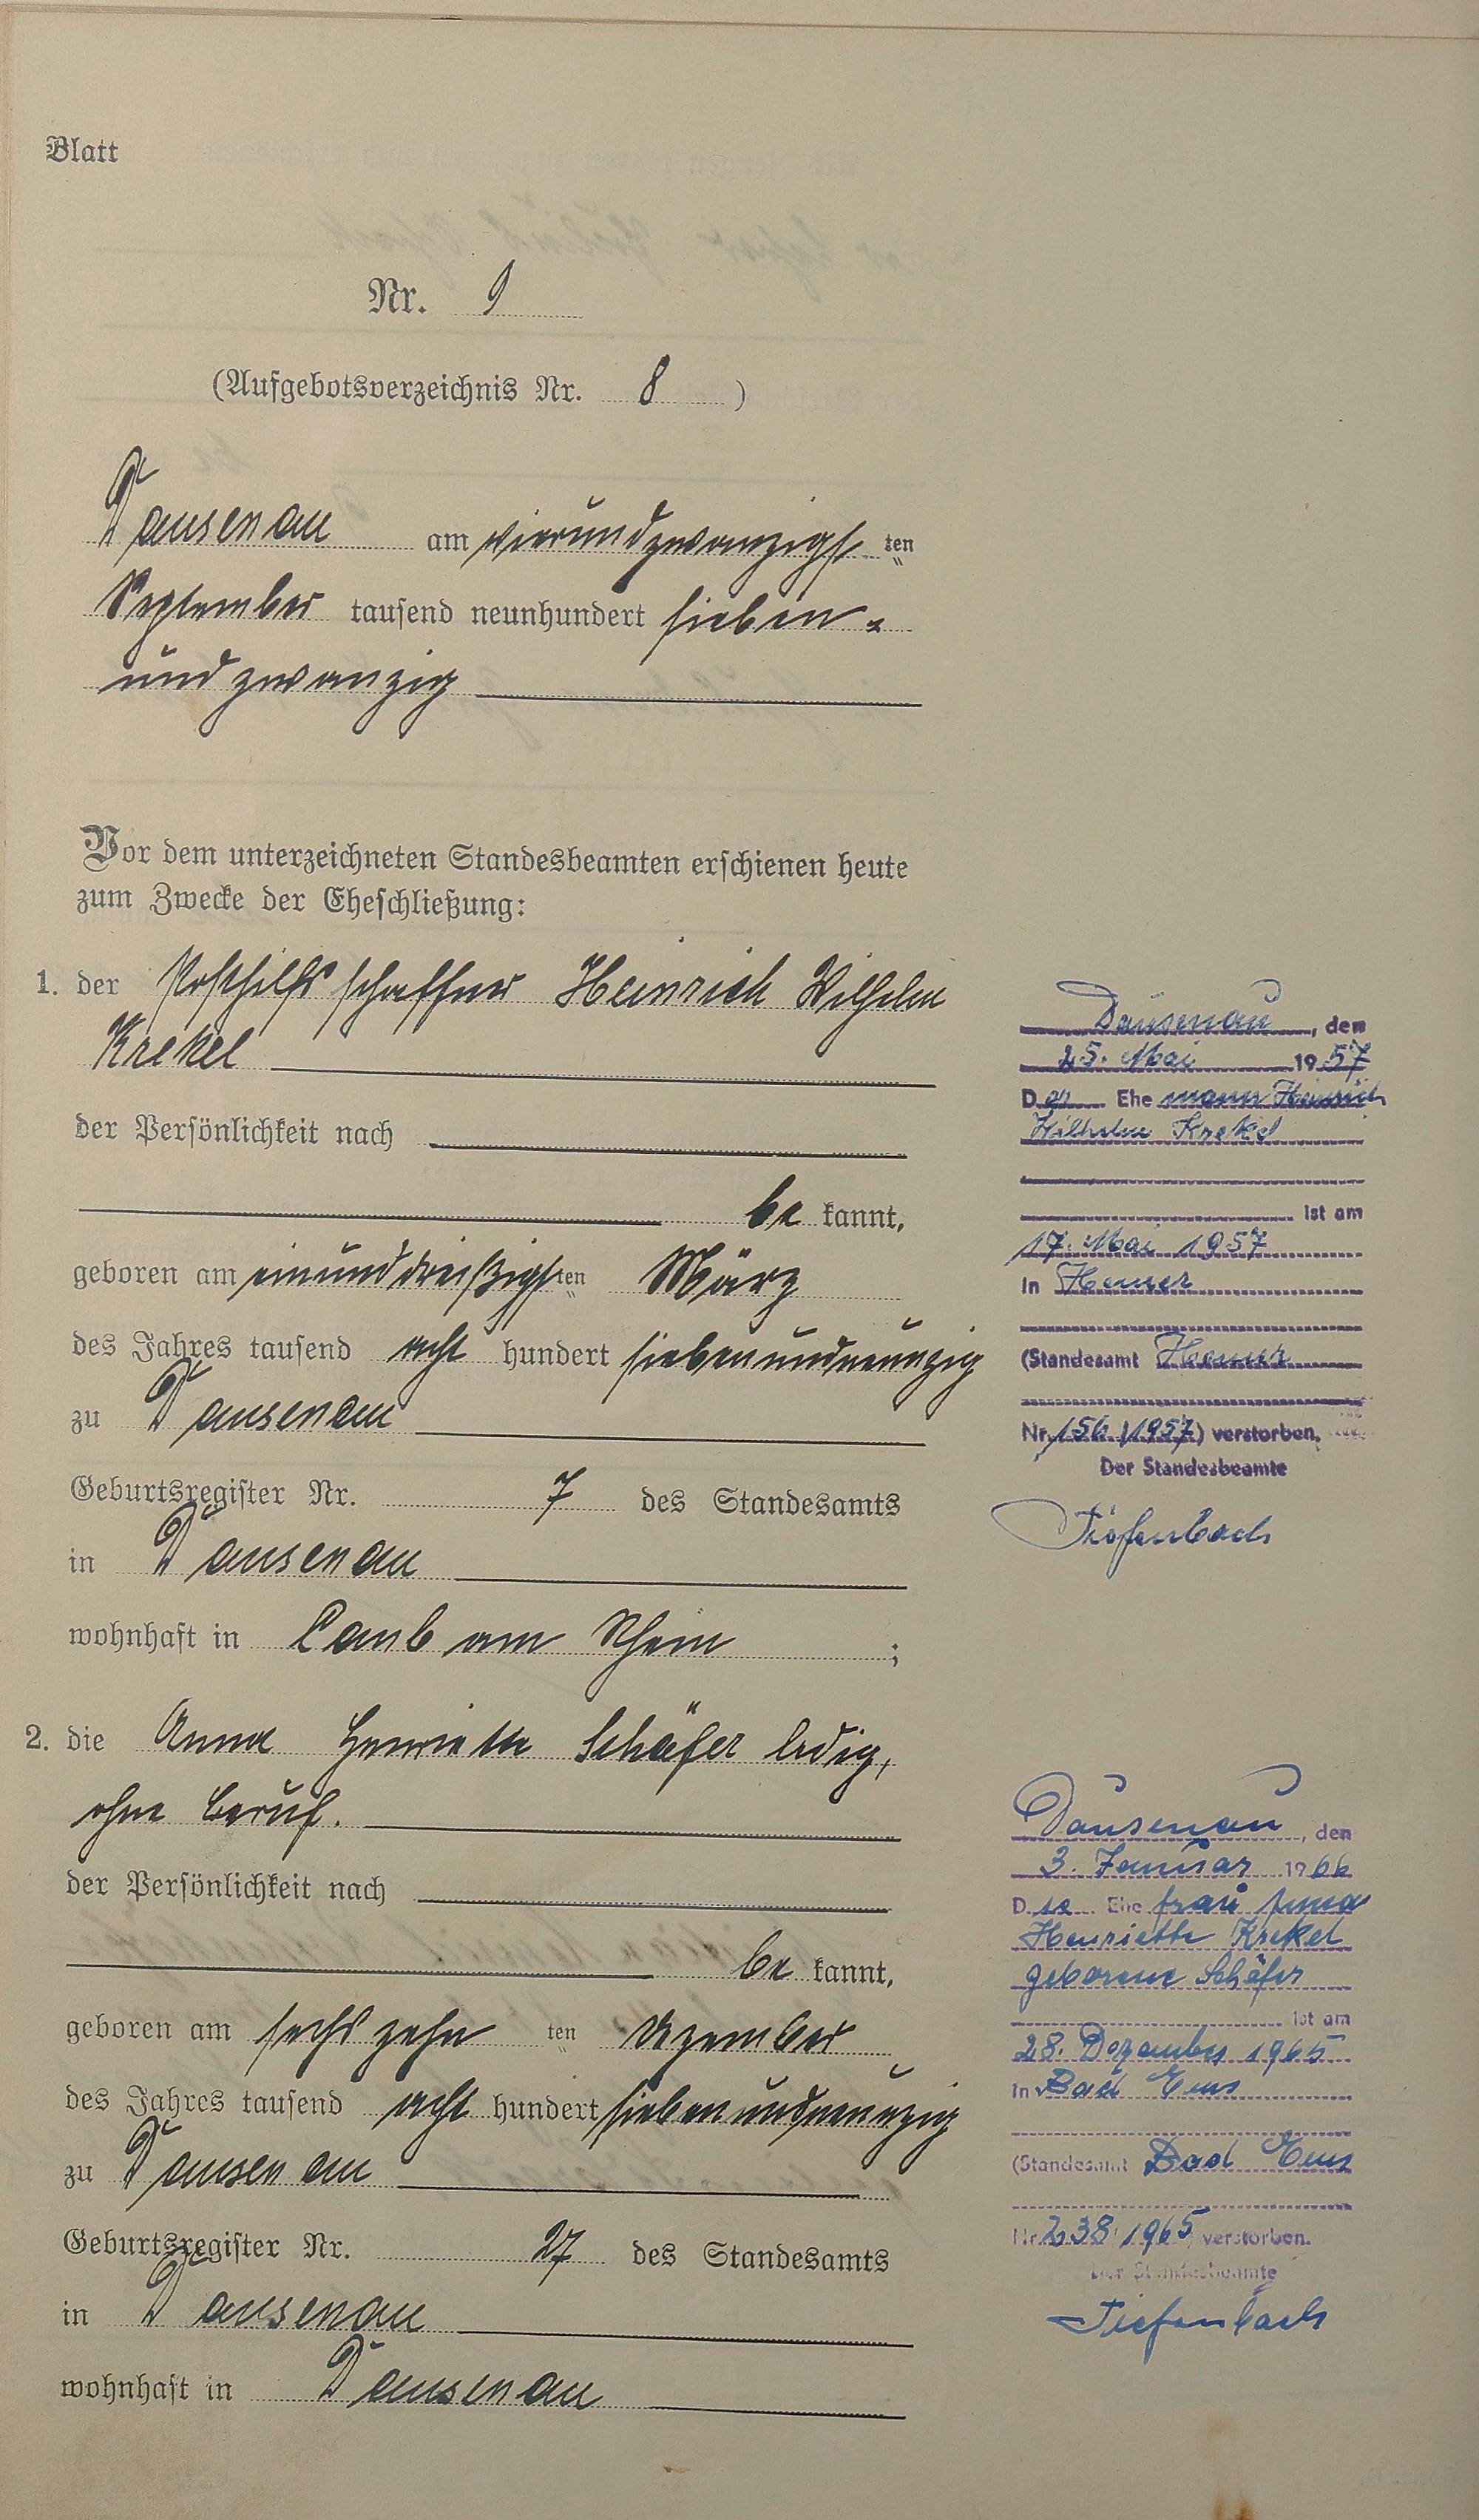 Blatt
Nr. 9
(Aufgebotsverzeichnis Nr. 8 )
Dausenau am vierundzwanzigst ten
September tausend neunhundert sieben =
und zwanzig
Vor dem unterzeichneten Standesbeamten erschienen heute
zum Zwecke der Eheschließung:
1. der Posthilfsschaffner Heinrich Wilhelm
Krekel
der Persönlichkeit nach
be kannt,
geboren am einunddreißigsten März
des Jahres tausend acht hundert siebenundneunzig
zu Dausenau
Geburtsregister Nr. 7 des Standesamts
in Dausenau
wohnhaft in Caub am Rhein ;
2. die Anna Henriette Schäfer ledig,
ohne Beruf.
der Persönlichkeit nach
be kannt,
geboren am sechszehn ten Dezember
des Jahres tausend acht hundert siebenundneunzig
zu Dausenau
Geburtsregister Nr. 27 des Standesamts
in Dausenau
wohnhaft in Dausenau
Dausenau, den
25. Mai 1957
Der Ehemann Heinrich
Wilhelm Krekel
ist am
17. Mai 1957
in Hemer
(Standesamt Hemer
Nr. 156/1957) verstorben.
Der Standesbeamte
Tiefenbach
Dausenau, den
3. Januar 1966
Die Ehefrau Anna
Henriette Krekel
geborene Schäfer
ist am
28. Dezember 1965
in Bad Ems
(Standesamt Bad Ems
Nr. 238/1965 verstorben.
Der Standesbeamte
Tiefenbach